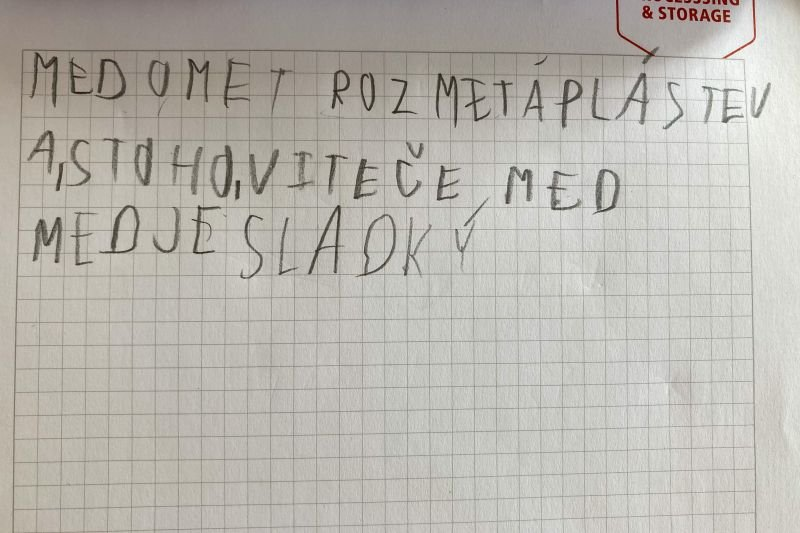 & STORAGE
MEDOMET ROZMETÁPLÁSTEV
A,STOHO,VITEČE MED
MEDJE SLADKÝ